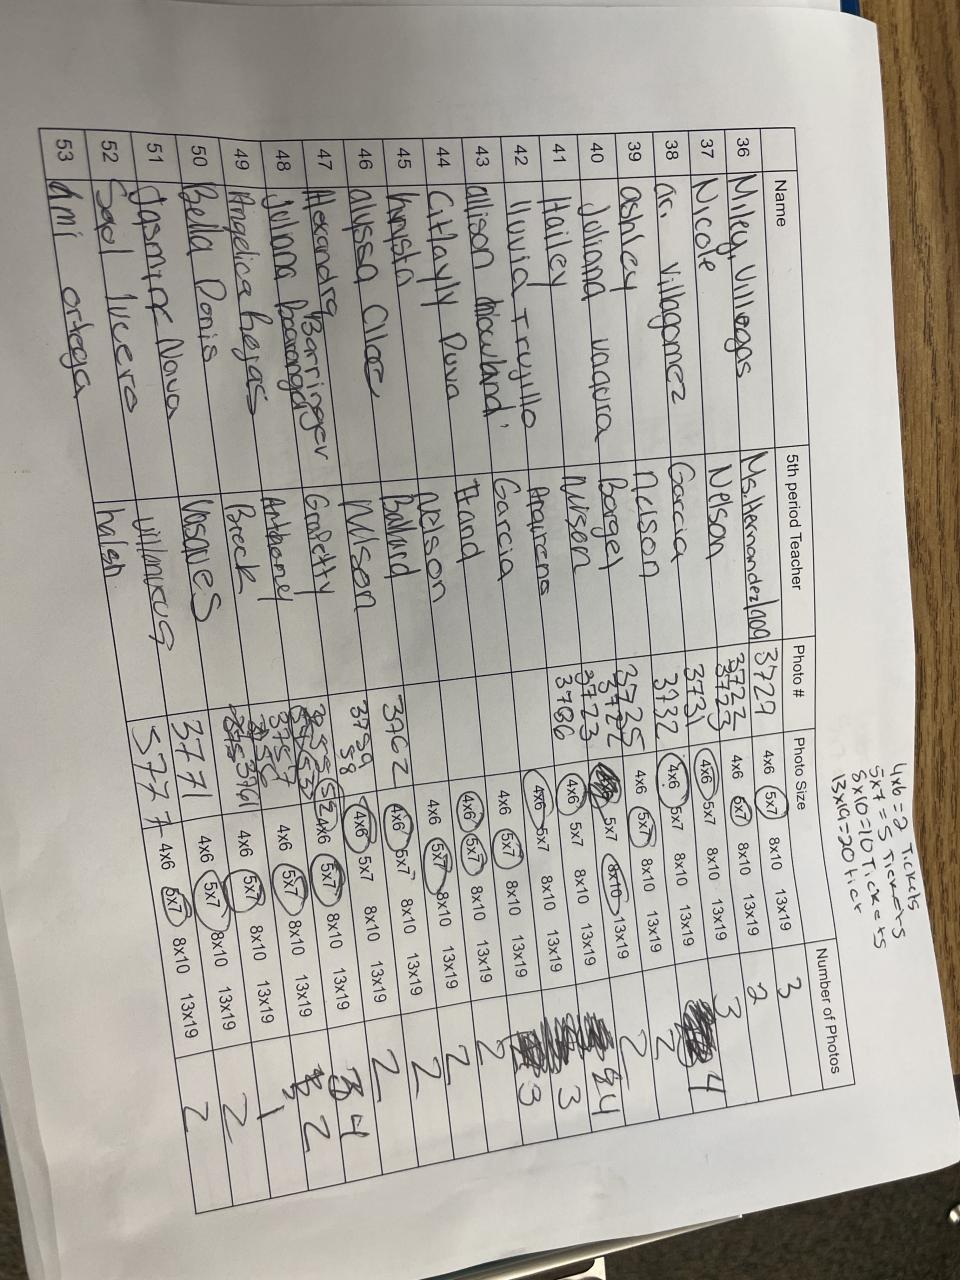 4x6=2 Tickets
5x7=5 Tickets
8x10=10 Tickets
13x19=20 tick
Name 5th period Teacher Photo # Photo Size Number of Photos
36 Milky Villegas Ms.Hernandez/109 3729 4x6 5x7 8x10 13x19 3
37 Nicole Nelson 3723 3723 4x6 5x7 8x10 13x19 2
38 Ari Villagomez Garcia 3731 4x6 5x7 8x10 13x19 3
39 ashley nelson 3732 4x6 5x7 8x10 13x19 4
40 Juliana Borgel 3725 3722 4x6 5x7 8x10 13x19 2
41 Hailey nelson 3723 5x7 8x10 13x19 2
42 lluvia Trujillo 3786 4x6 5x7 8x10 13x19 4
43 allison Garcia 4x6 5x7 8x10 13x19 3
44 Citlayly Hand 4x6 5x7 8x10 13x19 3
45 krysta nelson 4x6 5x7 8x10 13x19 2
46 alyssa Ballard 3762 4x6 5x7 8x10 13x19 2
47 Alexandra Barringer Nelson 3759 58 4x6 5x7 8x10 13x19 2
48 Julina 52 4x6 5x7 8x10 13x19 2
49 Angelica 3757 4x6 5x7 8x10 13x19 4
50 Bella Donis Breck 3761 4x6 5x7 8x10 13x19 2
51 Jasmine Nava Vasques 3771 4x6 5x7 8x10 13x19 1
52 lucero 5777 4x6 5x7 8x10 13x19 2
53 Ami ortega 4x6 5x7 8x10 13x19 2